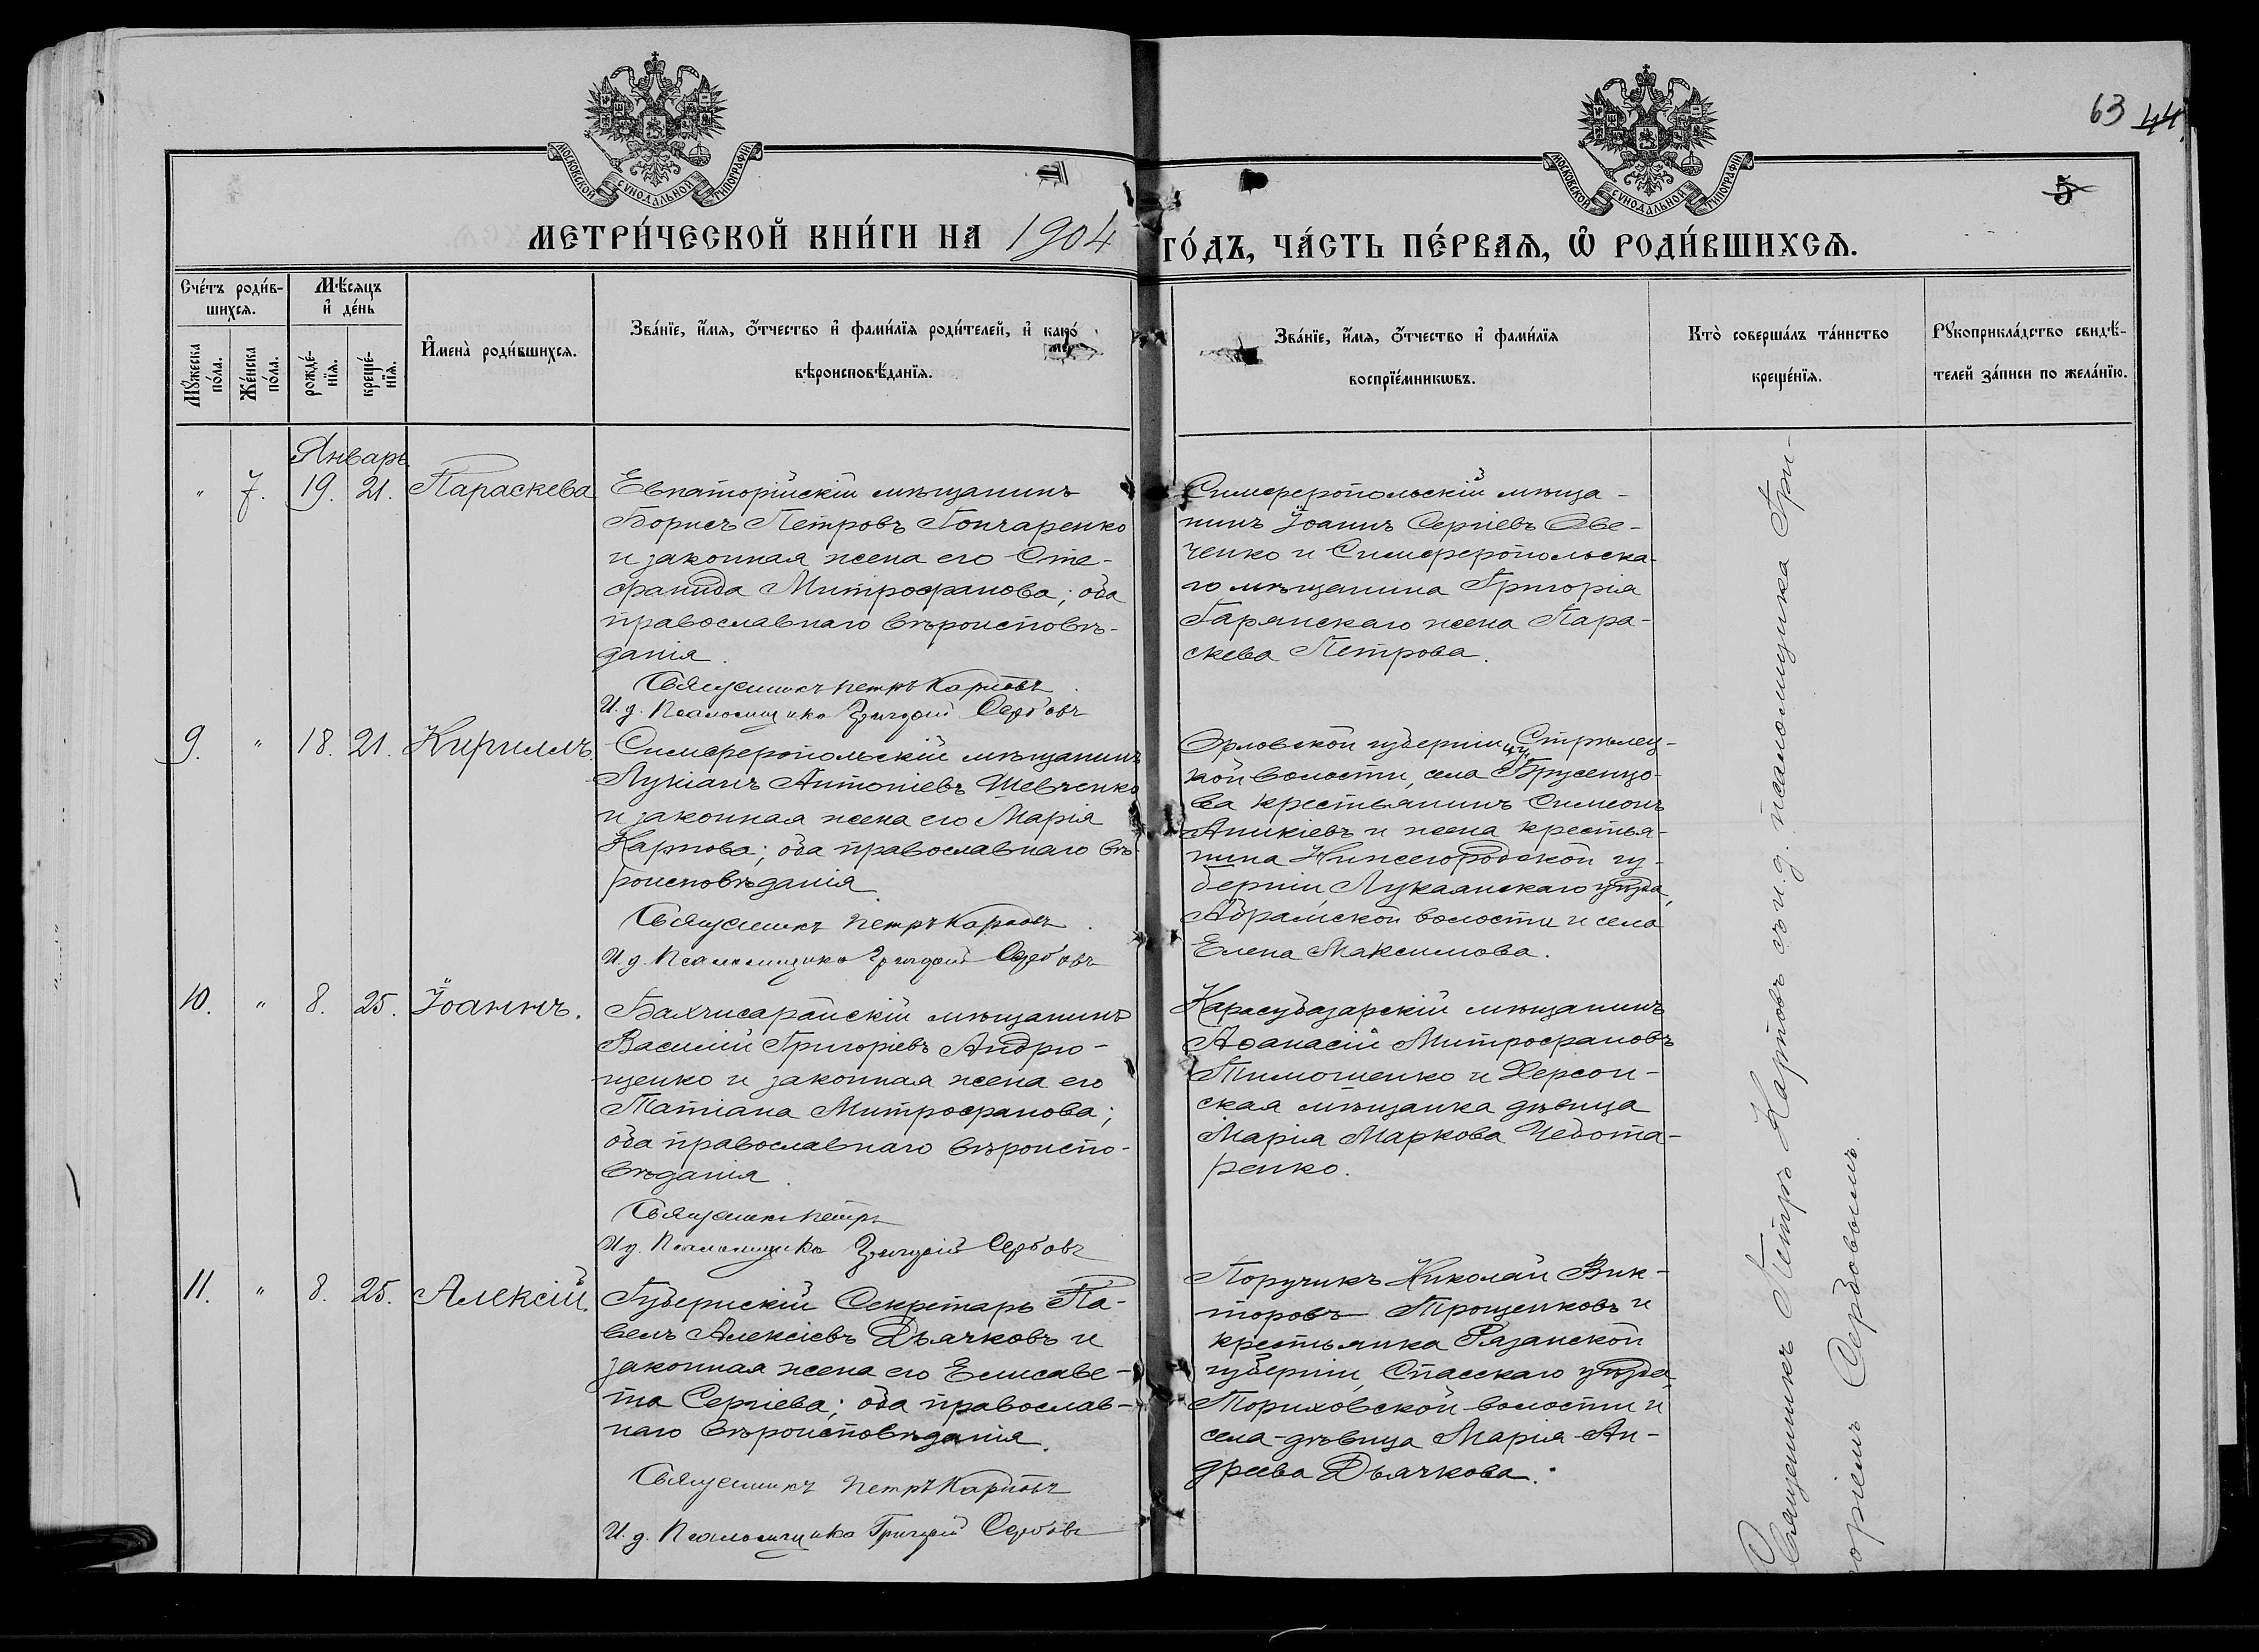 МОСКОВСКОЙ СѴНОДАЛЬНОЙ ТИПОГРАФІИ
МОСКОВСКОЙ СѴНОДАЛЬНОЙ ТИПОГРАФІИ
63 44
5
МЕТРИ́ЧЕСКОЙ КНИ́ГИ НА 1904 ГО́ДЪ, ЧА́СТЬ ПЕ́РВАѦ, Ѡ҆ РОДИ́ВШИХСѦ.
Сче́тъ роди́в-
шихсѧ.
Мꙋ́жеска по́ла.
Же́нска по́ла.
Мѣ́сяцъ
и҆ де́нь
рожде́-
нїѧ.
креще́-
нїѧ.
И҆мена̀ роди́вшихсѧ.
Зва́нїе, и҆́мѧ, ѻ҆́тчество и҆ фами́лїѧ роди́телей, и҆ како́
вѣроисповѣ́данїѧ.
Зва́нїе, и҆́мѧ, ѻ҆́тчество и҆ фами́лїѧ
воспрїе́мникѡвъ.
Кто̀ соверша́лъ та́инство
креще́нїѧ.
Рꙋкоприкла́дство свидѣ́-
телей за́писи по жела́нїю.
Январь
" 7. 19. 21. Параскева
Евпаторійскій мѣщанинъ
Борисъ Петровъ Гончаренко
и законная жена его Сте-
фанида Митрофанова; оба
православнаго вѣроисповѣ-
данія.
Священникъ Петръ Карповъ
И. д. Псаломщика Григорій Сербовъ
Симферопольскій мѣща-
нинъ Іоаннъ Сергіевъ Ове-
ченко и Симферопольска-
го мѣщанина Григорія
Гарянскаго жена Пара-
скева Петрова.
9. " 18. 21. Кириллъ.
Симферопольскій мѣщанинъ
Лукіанъ Антоніевъ Шевченко
и законная жена его Марія
Карпова; оба православнаго вѣ-
роисповѣданія
Священникъ Петръ Карповъ
И. д. Псаломщика Григорій Сербовъ
Орловской губерніи, Стрѣлец-
кой волости, села Брусенцо-
ва крестьянинъ Симеонъ
Аникіевъ и жена крестья-
нина Нижегородской гу-
берніи, Лукаянскаго уѣзда,
Абрамской волости и села
Елена Максимова.
10. " 8. 25. Іоаннъ.
Бахчисарайскій мѣщанинъ
Василій Григоріевъ Андрю-
щенко и законная жена его
Татіана Митрофанова;
оба православнаго вѣроиспо-
вѣданія.
Священникъ Петръ
И. д. Псаломщика Григорій Сербовъ
Карасубазарскій мѣщанинъ
Аѳанасій Митрофановъ
Тимошенко и Херсон-
ская мѣщанка дѣвица
Марія Маркова Чебота-
ренко.
11. " 8. 25. Алексій.
Губернскій Секретарь Па-
велъ Алексіевъ Дьячковъ и
законная жена его Елисаве-
та Сергіева; оба православ-
наго вѣроисповѣданія.
Священникъ Петръ Карповъ
И. д. Псаломщика Григорій Сербовъ
Поручикъ Николай Вик-
торовъ Трощенковъ и
крестьянка Рязанской
губерніи, Спасскаго уѣзда,
Ториховской волости и
села дѣвица Марія Ан-
дреева Дьячкова.
Священникъ Петръ Карповъ съ и. д. псаломщика Гри-
горіемъ Сербовымъ.